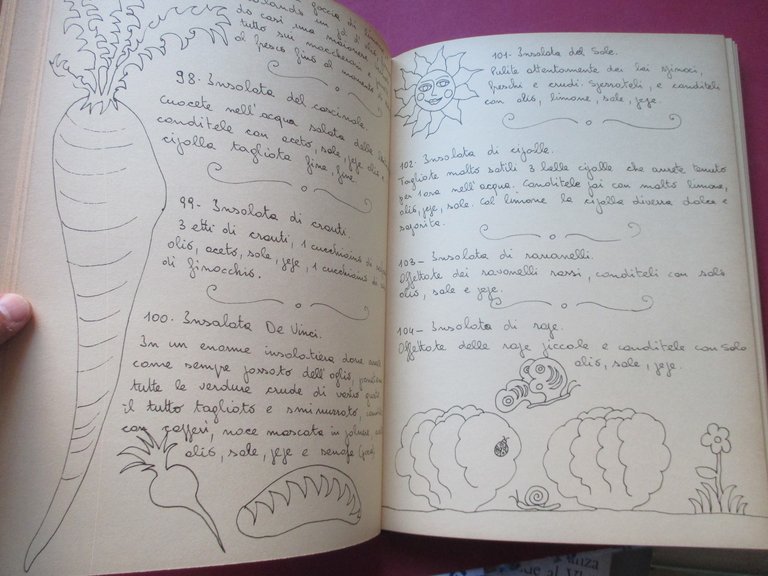 goccia di
un po' di olio
da casi una
tutto sui maccheroni e
al fresco fino al momento
98- Insalata del carcinole.
Cuocete nell'acqua salata delle
conditele con aceto, sale, pepe olio e
cipolla tagliata fine, fine
99- Insalata di crauti.
3 etti di crauti, 1 cucchiaino di
olio, aceto, sale, pepe, 1 cucchiaino di
di finocchio.
100. Insalata De Vinci.
In un enorme insalatiera dove avrete
come sempre passato dell'aglio,
tutte le verdure crude di vostro gusto
il tutto tagliato e sminuzzato,
con capperi, noce moscata in polvere
olio, sale, pepe e senape
101- Insalata del Sole.
Pulite attentamente dei bei spinaci,
freschi e crudi. Spezzateli, e conditeli
con olio, limone, sale, pepe.
102. Insalata di cipolle.
Tagliate molto sottili 3 belle cipolle che avrete tenuto
per 1 ora nell'acqua. Conditele poi con molto limone,
olio, pepe, sale. Col limone la cipolla diverrà dolce e
saporita.
103- Insalata di ravanelli.
Affettate dei ravanelli rossi, conditeli con solo
olio, sale e pepe.
104- Insalata di rape.
Affettate delle rape piccole e conditele con solo
olio, sale, pepe.